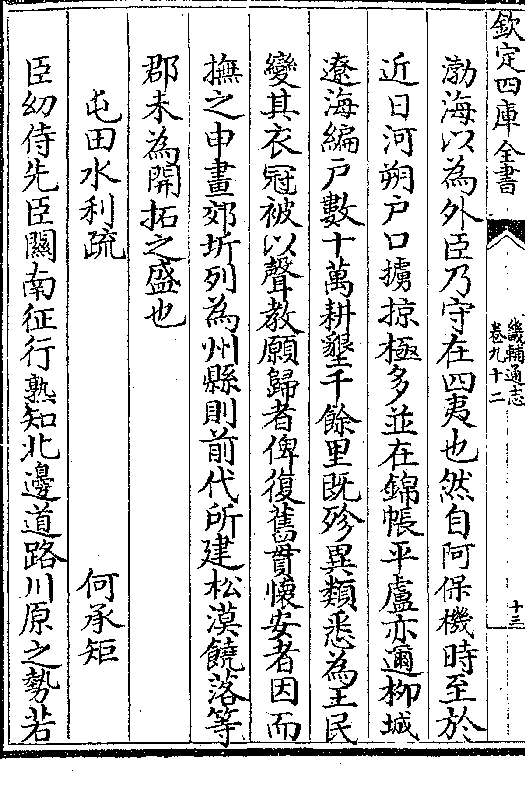 欽定四庫全書
畿輔通志
卷九十二
十三
渤海以為外臣乃守在四夷也然自阿保機時至於
近日河朔戶口擄掠極多並在錦帳平盧亦邇柳城
遼海編戶數十萬耕墾千餘里既殄異類悉為王民
變其衣冠被以聲教願歸者俾復舊貫懷安者因而
撫之申畫郊圻列為州縣則前代所建松漠饒落等
郡未為開拓之盛也
屯田水利疏
何承矩
臣幼侍先臣關南征行熟知北邊道路川原之勢若